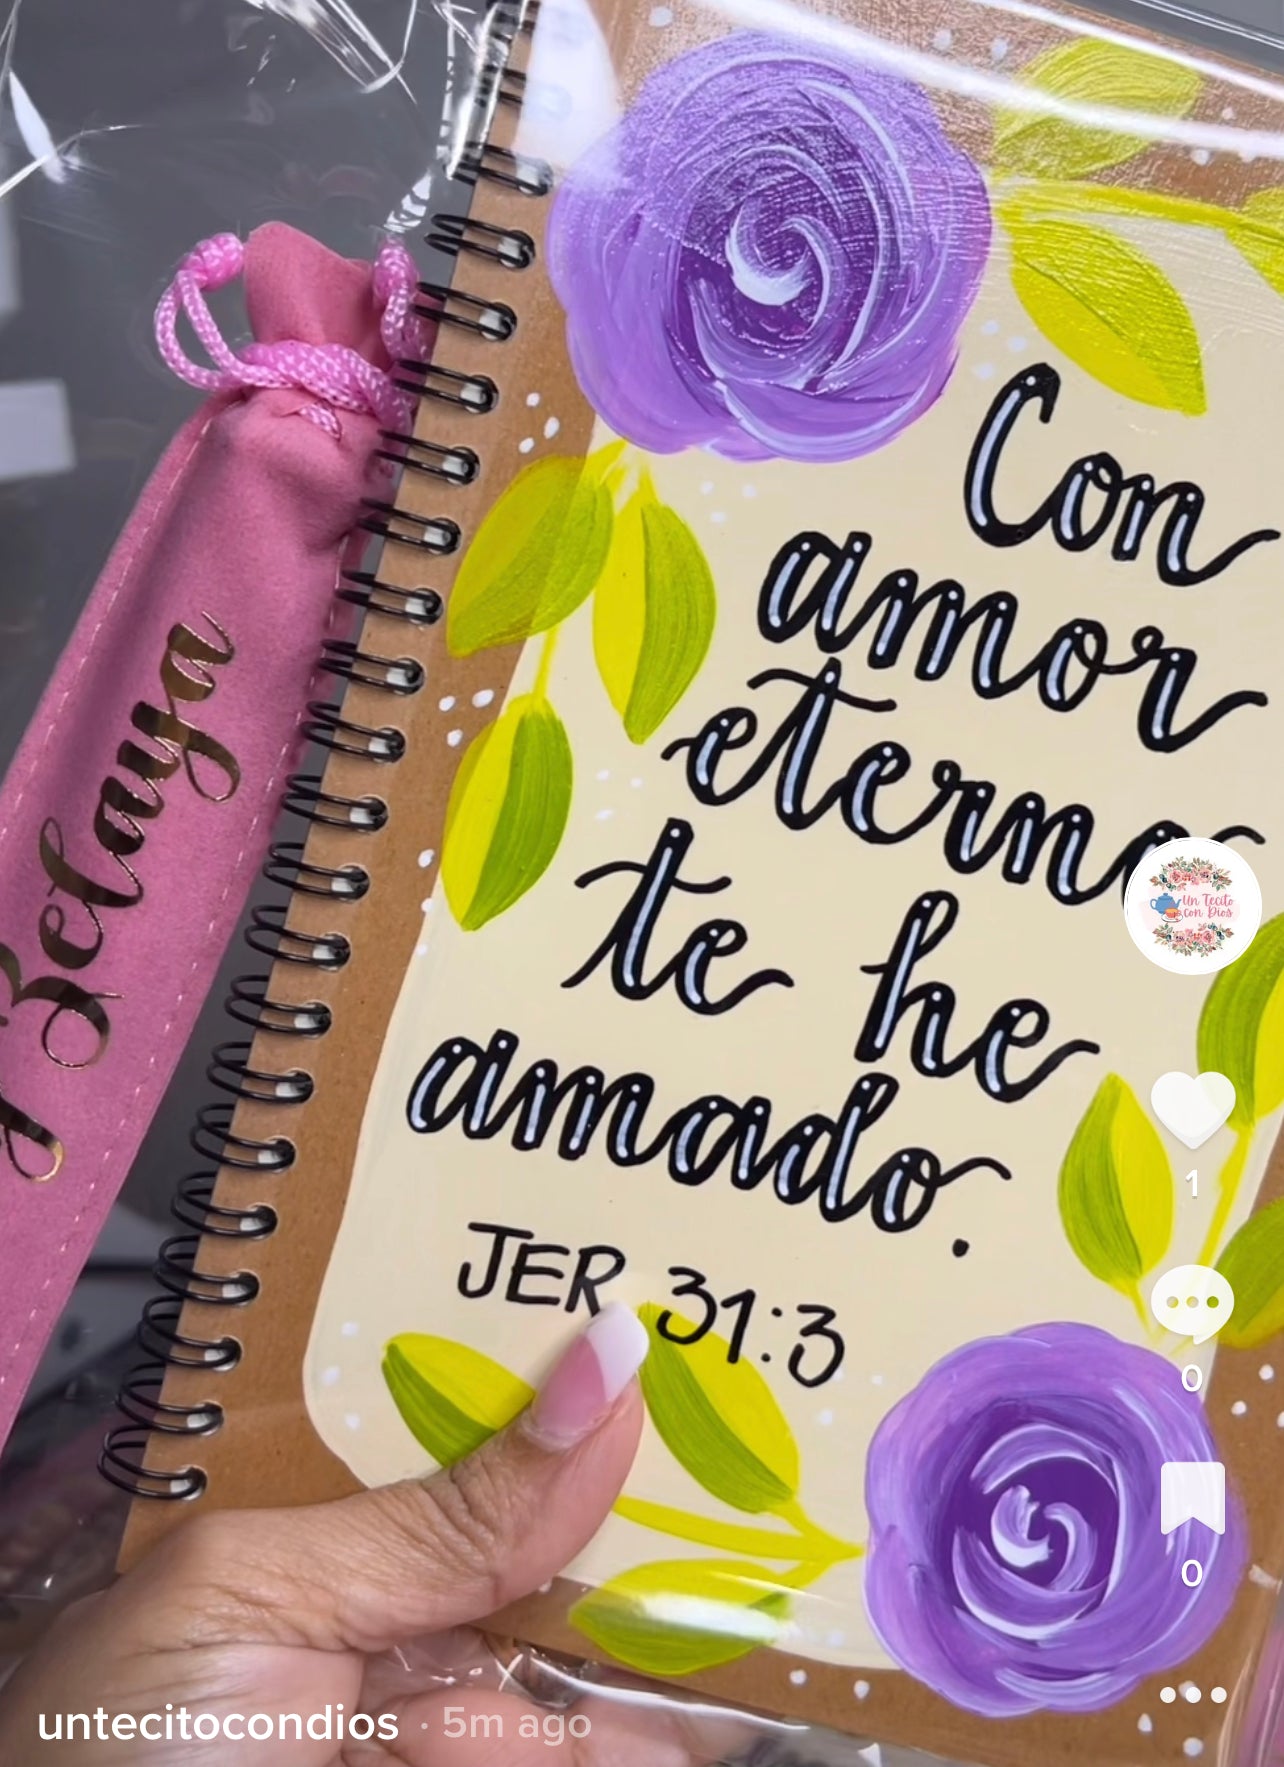 Con
amor
eterno
te he
amado.
JER 31:3
Zelaya
Un Tecito
con Dios
1
0
0
untecitocondios · 5m ago